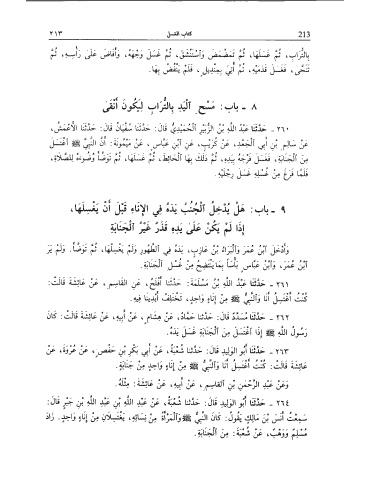 213 كتاب الغسل ٢١٣
بِالتُّرَابِ، ثُمَّ غَسَلَهَا، ثُمَّ تَمَضْمَضَ وَاسْتَنْشَقَ، ثُمَّ غَسَلَ وَجْهَهُ، وَأَفَاضَ عَلَى رَأْسِهِ، ثُمَّ
تَنَحَّى، فَغَسَلَ قَدَمَيْهِ، ثُمَّ أُتِيَ بِمِنْدِيلٍ، فَلَمْ يَنْفُضْ بِهَا.
٨ - باب: مَسْحِ الْيَدِ بِالتُّرَابِ لِيَكُونَ أَنْقَى
٢٦٠ - حَدَّثَنَا عَبْدُ اللَّهِ بْنُ الزُّبَيْرِ الْحُمَيْدِيُّ قَالَ: حَدَّثَنَا سُفْيَانُ قَالَ: حَدَّثَنَا الْأَعْمَشُ،
عَنْ سَالِمِ بْنِ أَبِي الْجَعْدِ، عَنْ كُرَيْبٍ، عَنِ ابْنِ عَبَّاسٍ، عَنْ مَيْمُونَةَ: أَنَّ النَّبِيَّ ﷺ اغْتَسَلَ
مِنَ الْجَنَابَةِ، فَغَسَلَ فَرْجَهُ بِيَدِهِ، ثُمَّ دَلَكَ بِهَا الْحَائِطَ، ثُمَّ غَسَلَهَا، ثُمَّ تَوَضَّأَ وُضُوءَهُ لِلصَّلَاةِ،
فَلَمَّا فَرَغَ مِنْ غُسْلِهِ غَسَلَ رِجْلَيْهِ.
٩ - باب: هَلْ يُدْخِلُ الْجُنُبُ يَدَهُ فِي الْإِنَاءِ قَبْلَ أَنْ يَغْسِلَهَا،
إِذَا لَمْ يَكُنْ عَلَى يَدِهِ قَذَرٌ غَيْرُ الْجَنَابَةِ
وَأَدْخَلَ ابْنُ عُمَرَ وَالْبَرَاءُ بْنُ عَازِبٍ، يَدَهُ فِي الطَّهُورِ وَلَمْ يَغْسِلْهَا، ثُمَّ تَوَضَّأَ. وَلَمْ يَرَ
ابْنُ عُمَرَ، وَابْنُ عَبَّاسٍ بَأْسًا بِمَا يَنْتَضِحُ مِنْ غُسْلِ الْجَنَابَةِ.
٢٦١ - حَدَّثَنَا عَبْدُ اللَّهِ بْنُ مَسْلَمَةَ: حَدَّثَنَا أَفْلَحُ، عَنِ الْقَاسِمِ، عَنْ عَائِشَةَ قَالَتْ:
كُنْتُ أَغْتَسِلُ أَنَا وَالنَّبِيُّ ﷺ مِنْ إِنَاءٍ وَاحِدٍ، تَخْتَلِفُ أَيْدِينَا فِيهِ.
٢٦٢ - حَدَّثَنَا مُسَدَّدٌ قَالَ: حَدَّثَنَا حَمَّادٌ، عَنْ هِشَامٍ، عَنْ أَبِيهِ، عَنْ عَائِشَةَ قَالَتْ: كَانَ
رَسُولُ اللَّهِ ﷺ إِذَا اغْتَسَلَ مِنَ الْجَنَابَةِ غَسَلَ يَدَهُ.
٢٦٣ - حَدَّثَنَا أَبُو الْوَلِيدِ قَالَ: حَدَّثَنَا شُعْبَةُ، عَنْ أَبِي بَكْرِ بْنِ حَفْصٍ، عَنْ عُرْوَةَ، عَنْ
عَائِشَةَ قَالَتْ: كُنْتُ أَغْتَسِلُ أَنَا وَالنَّبِيُّ ﷺ مِنْ إِنَاءٍ وَاحِدٍ مِنْ جَنَابَةٍ.
وَعَنْ عَبْدِ الرَّحْمَنِ بْنِ الْقَاسِمِ، عَنْ أَبِيهِ، عَنْ عَائِشَةَ: مِثْلَهُ.
٢٦٤ - حَدَّثَنَا أَبُو الْوَلِيدِ قَالَ: حَدَّثَنَا شُعْبَةُ، عَنْ عَبْدِ اللَّهِ بْنِ عَبْدِ اللَّهِ بْنِ جَبْرٍ قَالَ:
سَمِعْتُ أَنَسَ بْنَ مَالِكٍ يَقُولُ: كَانَ النَّبِيُّ ﷺ وَالْمَرْأَةُ مِنْ نِسَائِهِ، يَغْتَسِلَانِ مِنْ إِنَاءٍ وَاحِدٍ. زَادَ
مُسْلِمٌ وَوَهْبٌ، عَنْ شُعْبَةَ: مِنَ الْجَنَابَةِ.